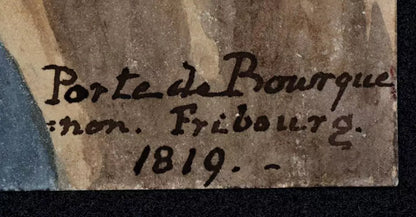 Porte de Bourgue
=non. Fribourg.
1819. -